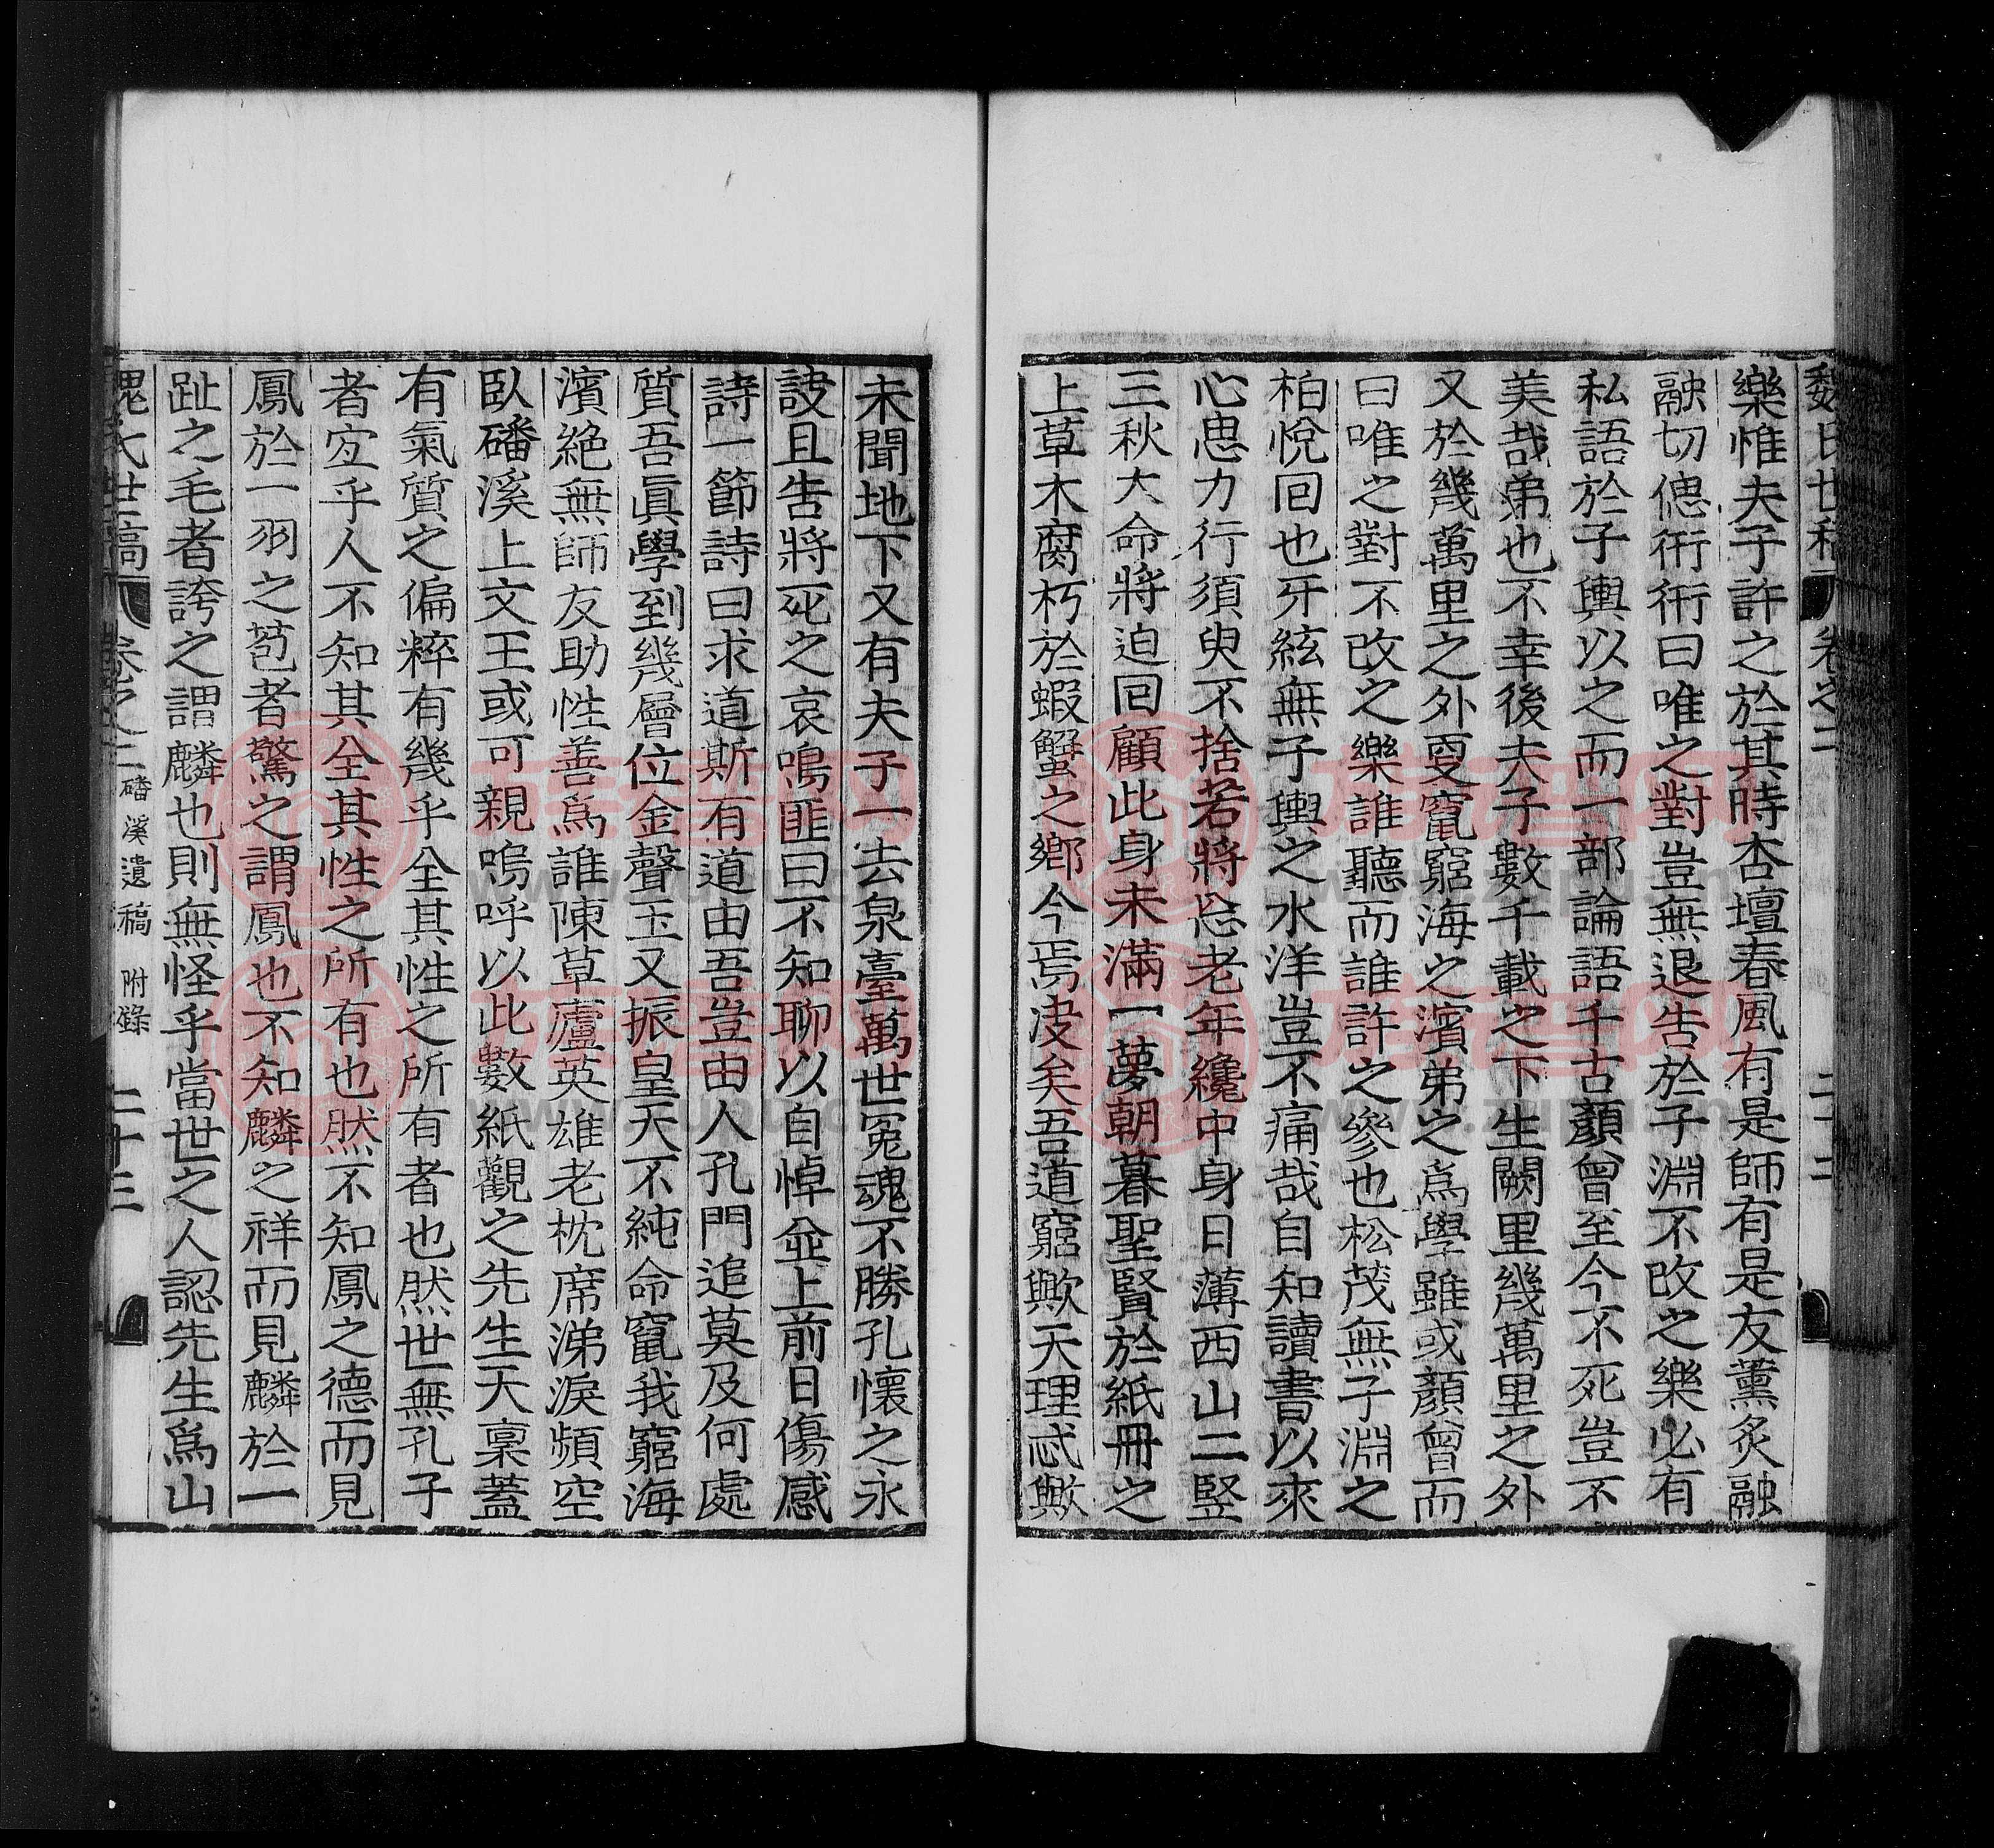 魏氏世稿 卷之二 二十二
樂惟夫子許之於其時杏壇春風有是師有是友薰炙融
融切偲衎衎曰唯之對豈無退告於子淵不改之樂必有
私語於子輿以之而一部論語千古顏曾至今不死豈不
美哉弟也不幸後夫子數千載之下生闕里幾萬里之外
又於幾萬里之外夏竄窮海之濱弟之爲學雖或顏曾而
曰唯之對不改之樂誰聽而誰許之參也松茂無子淵之
柏悅回也牙絃無子輿之水洋豈不痛哉自知讀書以來
心思力行須臾不捨若將忘老年纔中身日薄西山二竪
三秋大命將迫回顧此身未滿一夢朝暮聖賢於紙冊之
上草木腐朽於蝦蟹之鄉今焉沒矣吾道窮歟天理忒歟
未聞地下又有夫子一去泉臺萬世冤魂不勝孔懷之永
訣且告將死之哀鳴匪曰不知聊以自悼並上前日傷感
詩一節詩曰求道斯有道由吾豈由人孔門追莫及何處
質吾眞學到幾層位金聲玉又振皇天不純命竄我窮海
濱絶無師友助性善爲誰陳草廬英雄老枕席涕淚頻空
臥磻溪上文王或可親嗚呼以此數紙觀之先生天稟蓋
有氣質之偏粹有幾乎全其性之所有者也然世無孔子
者宜乎人不知其全其性之所有也然不知鳳之德而見
鳳於一羽之苞者驚之謂鳳也不知麟之祥而見麟於一
趾之毛者誇之謂麟也則無怪乎當世之人認先生爲山
魏氏世稿 卷之二 磻溪遺稿 附錄 二十三